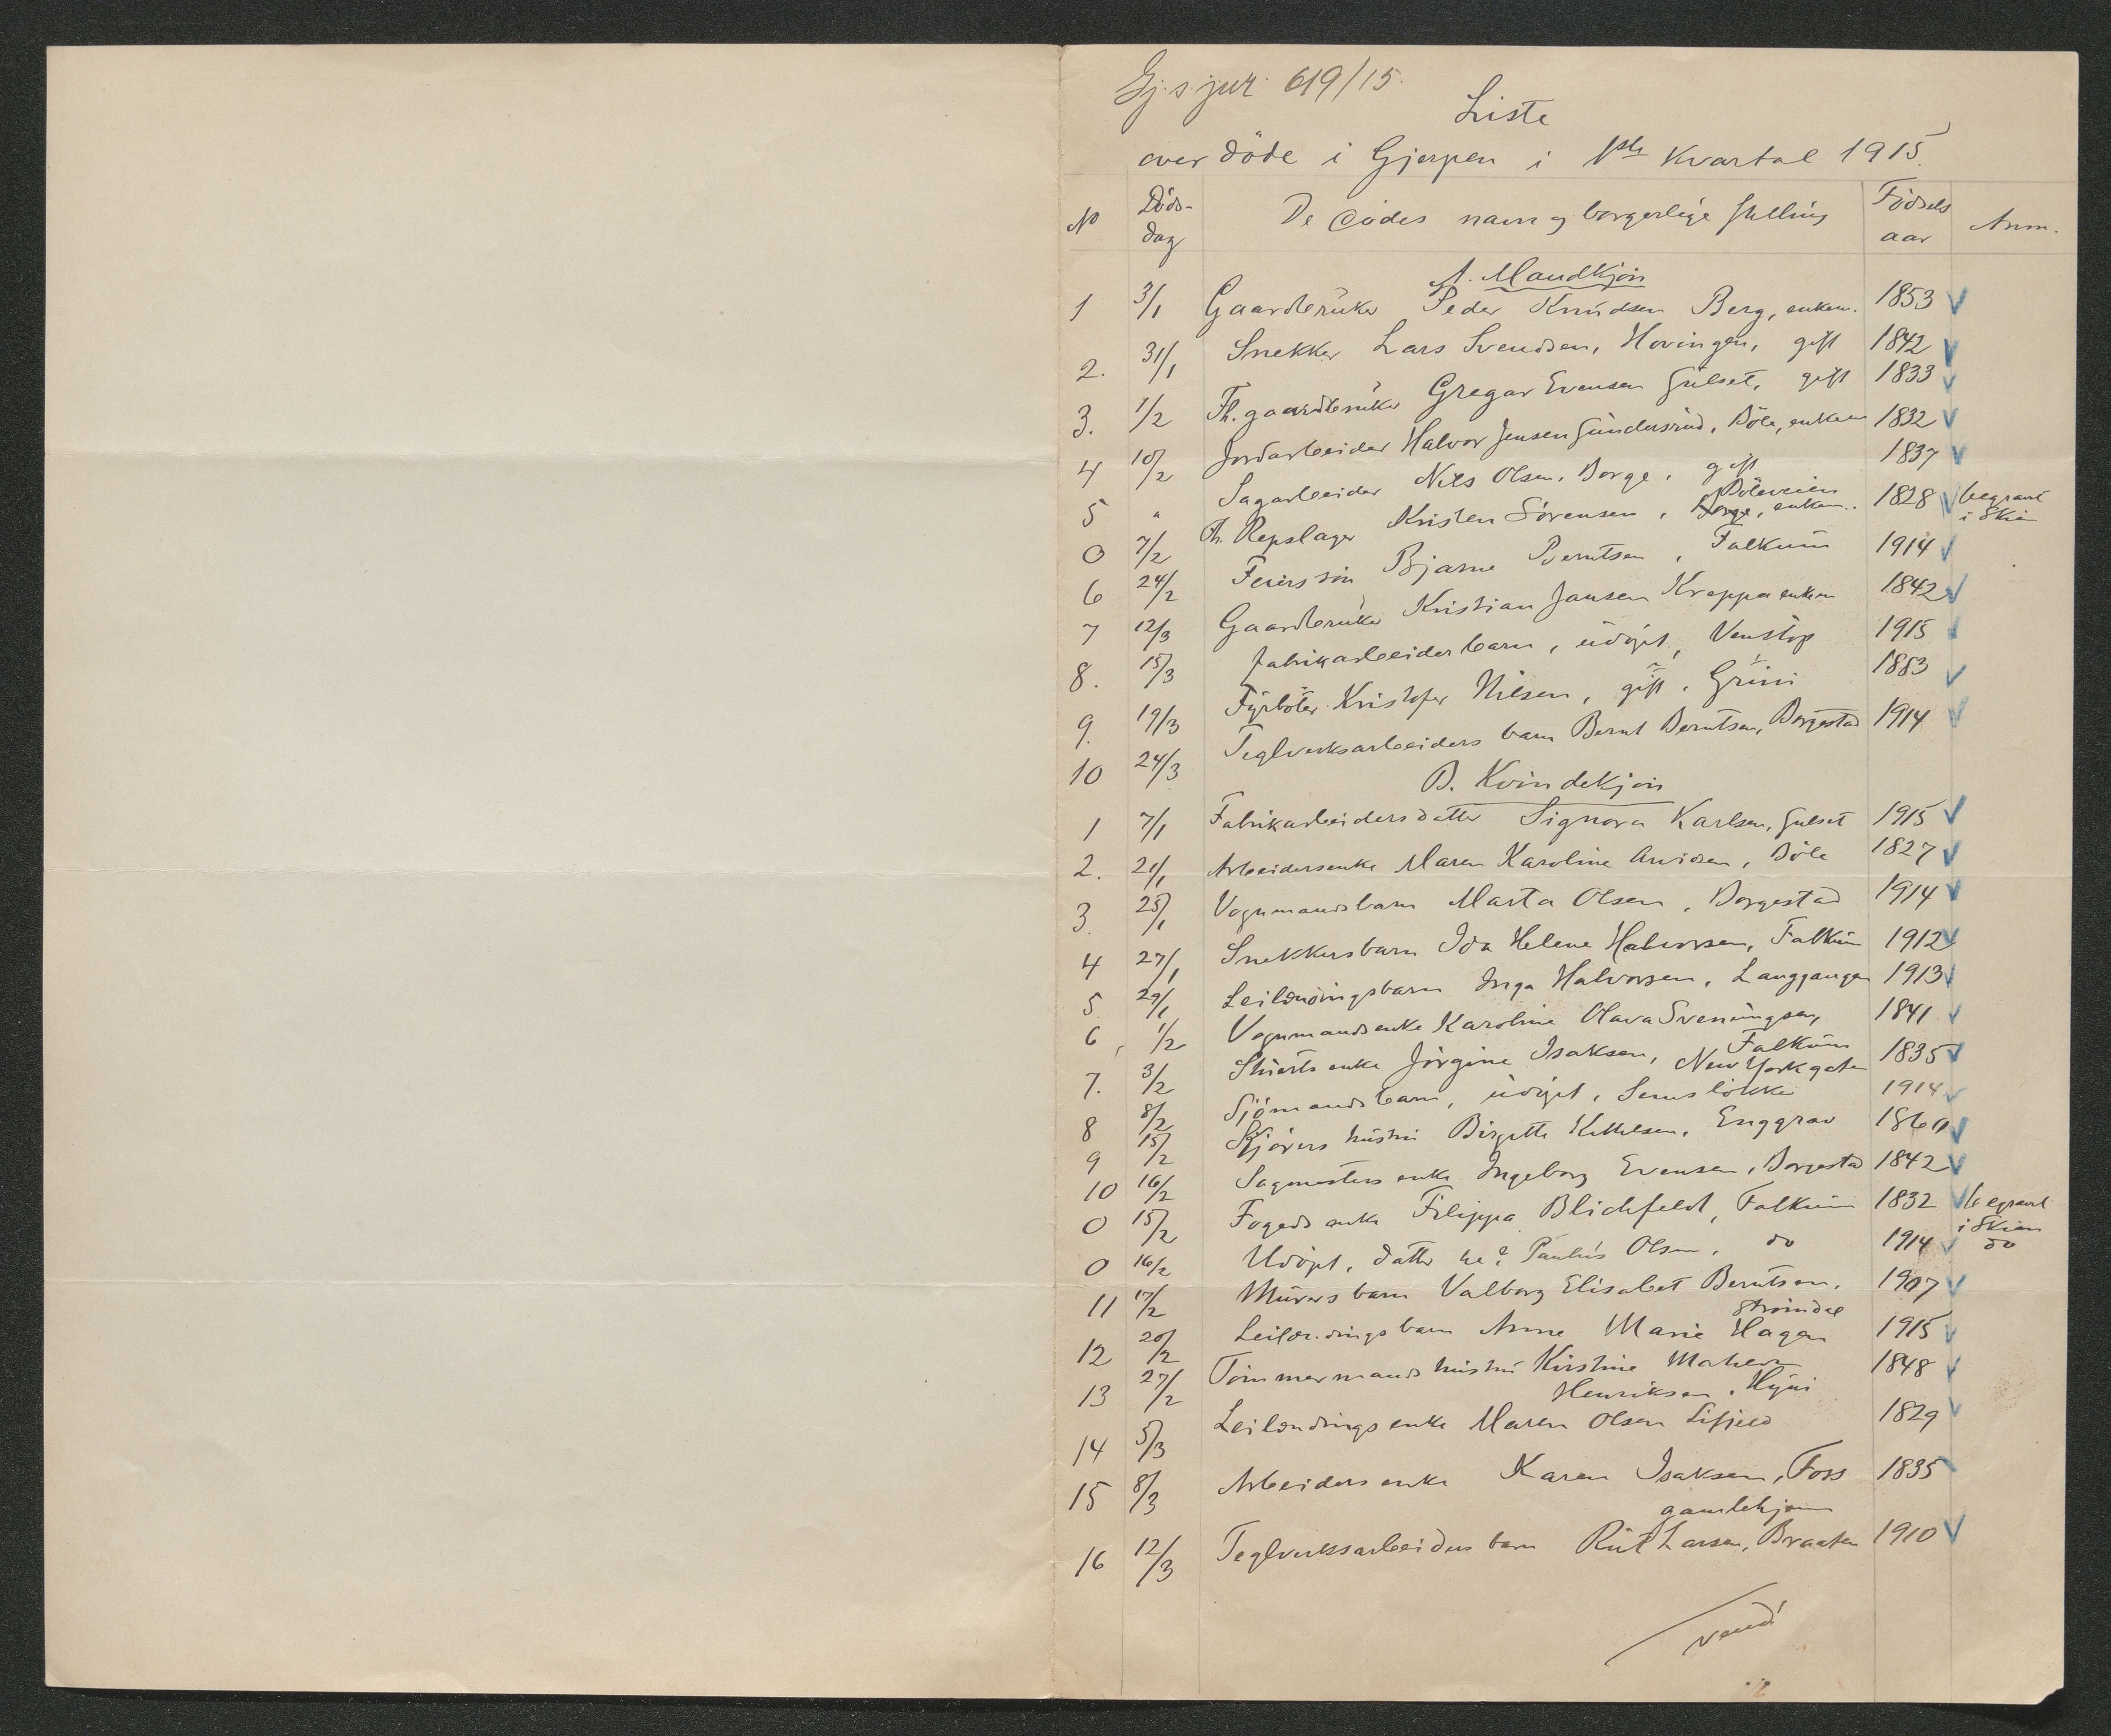 Gj.s.jur. 619/15.
Liste
over döde i Gjerpen i 1ste Kvartal 1915.
No Döds-dag De dödes navn og borgerlige stilling Födsels aar Anm.
A. Mandkjön
1 3/1 Gaardbruker Peder Knudsen Berg, enkem. 1853
2. 31/1 Snekker Lars Svendsen, Hovingen, gift 1842
3. 1/2 Fh. gaardbruker Gregar Evensen Gulset, gift 1833
4 10/2 Jordarbeider Halvor Jensen Gundersrud, Böle, enkem 1832
5 " Sagarbeider Nils Olsen, Borge, gift 1837
0 7/2 Fh. Repslager Kristen Sörensen, Borge, Böleveien enkem. 1828 begravet i Skien
6 24/2 Feiers sön Bjarne Berntsen, Falkum 1914
7 12/3 Gaardbruker Kristian Jansen Kreppa enkem 1842
8. 15/3 Fabrikarbeiderbarn, udöpt, Venstöp 1915
9. 19/3 Fyrböter Kristofer Nilsen, gift, Grini 1883
10 24/3 Teglverksarbeiders barn Bernt Berntsen, Borgestad 1914
B. Kvindekjön
1 7/1 Fabrikarbeiders datter Signora Karlsen, Gulset 1915
2. 21/1 Arbeidersenke Maren Karoline Arvidsen, Böle 1827
3. 25/1 Vognmandsbarn Marta Olsen, Borgestad 1914
4 27/1 Snekkersbarn Ida Helene Halvorsen, Falkum 1912
5 29/1 Leilændingsbarn Inga Halvorsen, Langgangen 1913
6 1/2 Vognmandsenke Karoline Olava Sveningsen, Falkum 1841
7. 3/2 Stuerts enke Jörgine Isaksen, New York gaten 1835
8 8/2 Sjömandsbarn, udöpt, Semslökka 1914
9 15/2 Kjörers hustru Birgitte Kittilsen, Enggrav 1860
10 16/2 Sagmesters enke Ingeborg Evensen, Borgestad 1842
0 15/2 Fogeds enke Filippa Blichfeldt, Falkum 1832 begravet i Skien
0 16/2 Udöpt, datter av? Paulus Olsen, do 1914 do
11 17/2 Murers barn Valborg Elisabet Berntsen, Strömdal 1907
12 20/2 Leilændingsbarn Anne Marie Hagen 1915
13 27/2 Tömmermands hustru Kirstine Maren Henriksen, Hyni 1848
14 5/3 Leilændings enke Maren Olsen Lifjeld 1829
15 8/3 Arbeiders enke Karen Isaksen, Foss gamlehjem 1835
16 12/3 Teglverksarbeiders barn Rut Larsen, Braaten 1910
vend!